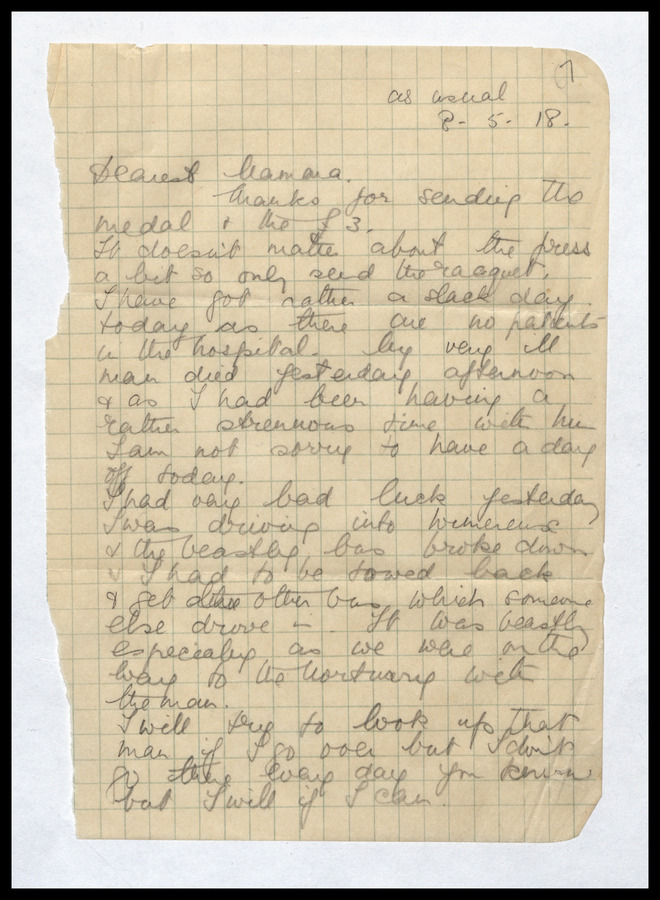 7
as usual
8 - 5 - 18.
Dearest Mamma.
Thanks for sending the
medal & the £3.
It doesn't matter about the press
a bit so only send the racquet.
I have got rather a slack day
today as there are no patients
in the hospital. My very ill
man died yesterday afternoon
& as I had been having a
rather strenuous time with him
I am not sorry to have a day
off today.
I had very bad luck yesterday
I was driving into Wimereux
& the beastly bus broke down
& I had to be towed back
& get the other bus which someone
else drove - . It was beastly
especially as we were on the
way to the Mortuary with
the man.
I will try to look up that
man if I go over but I don't
go there every day you know
but I will if I can.